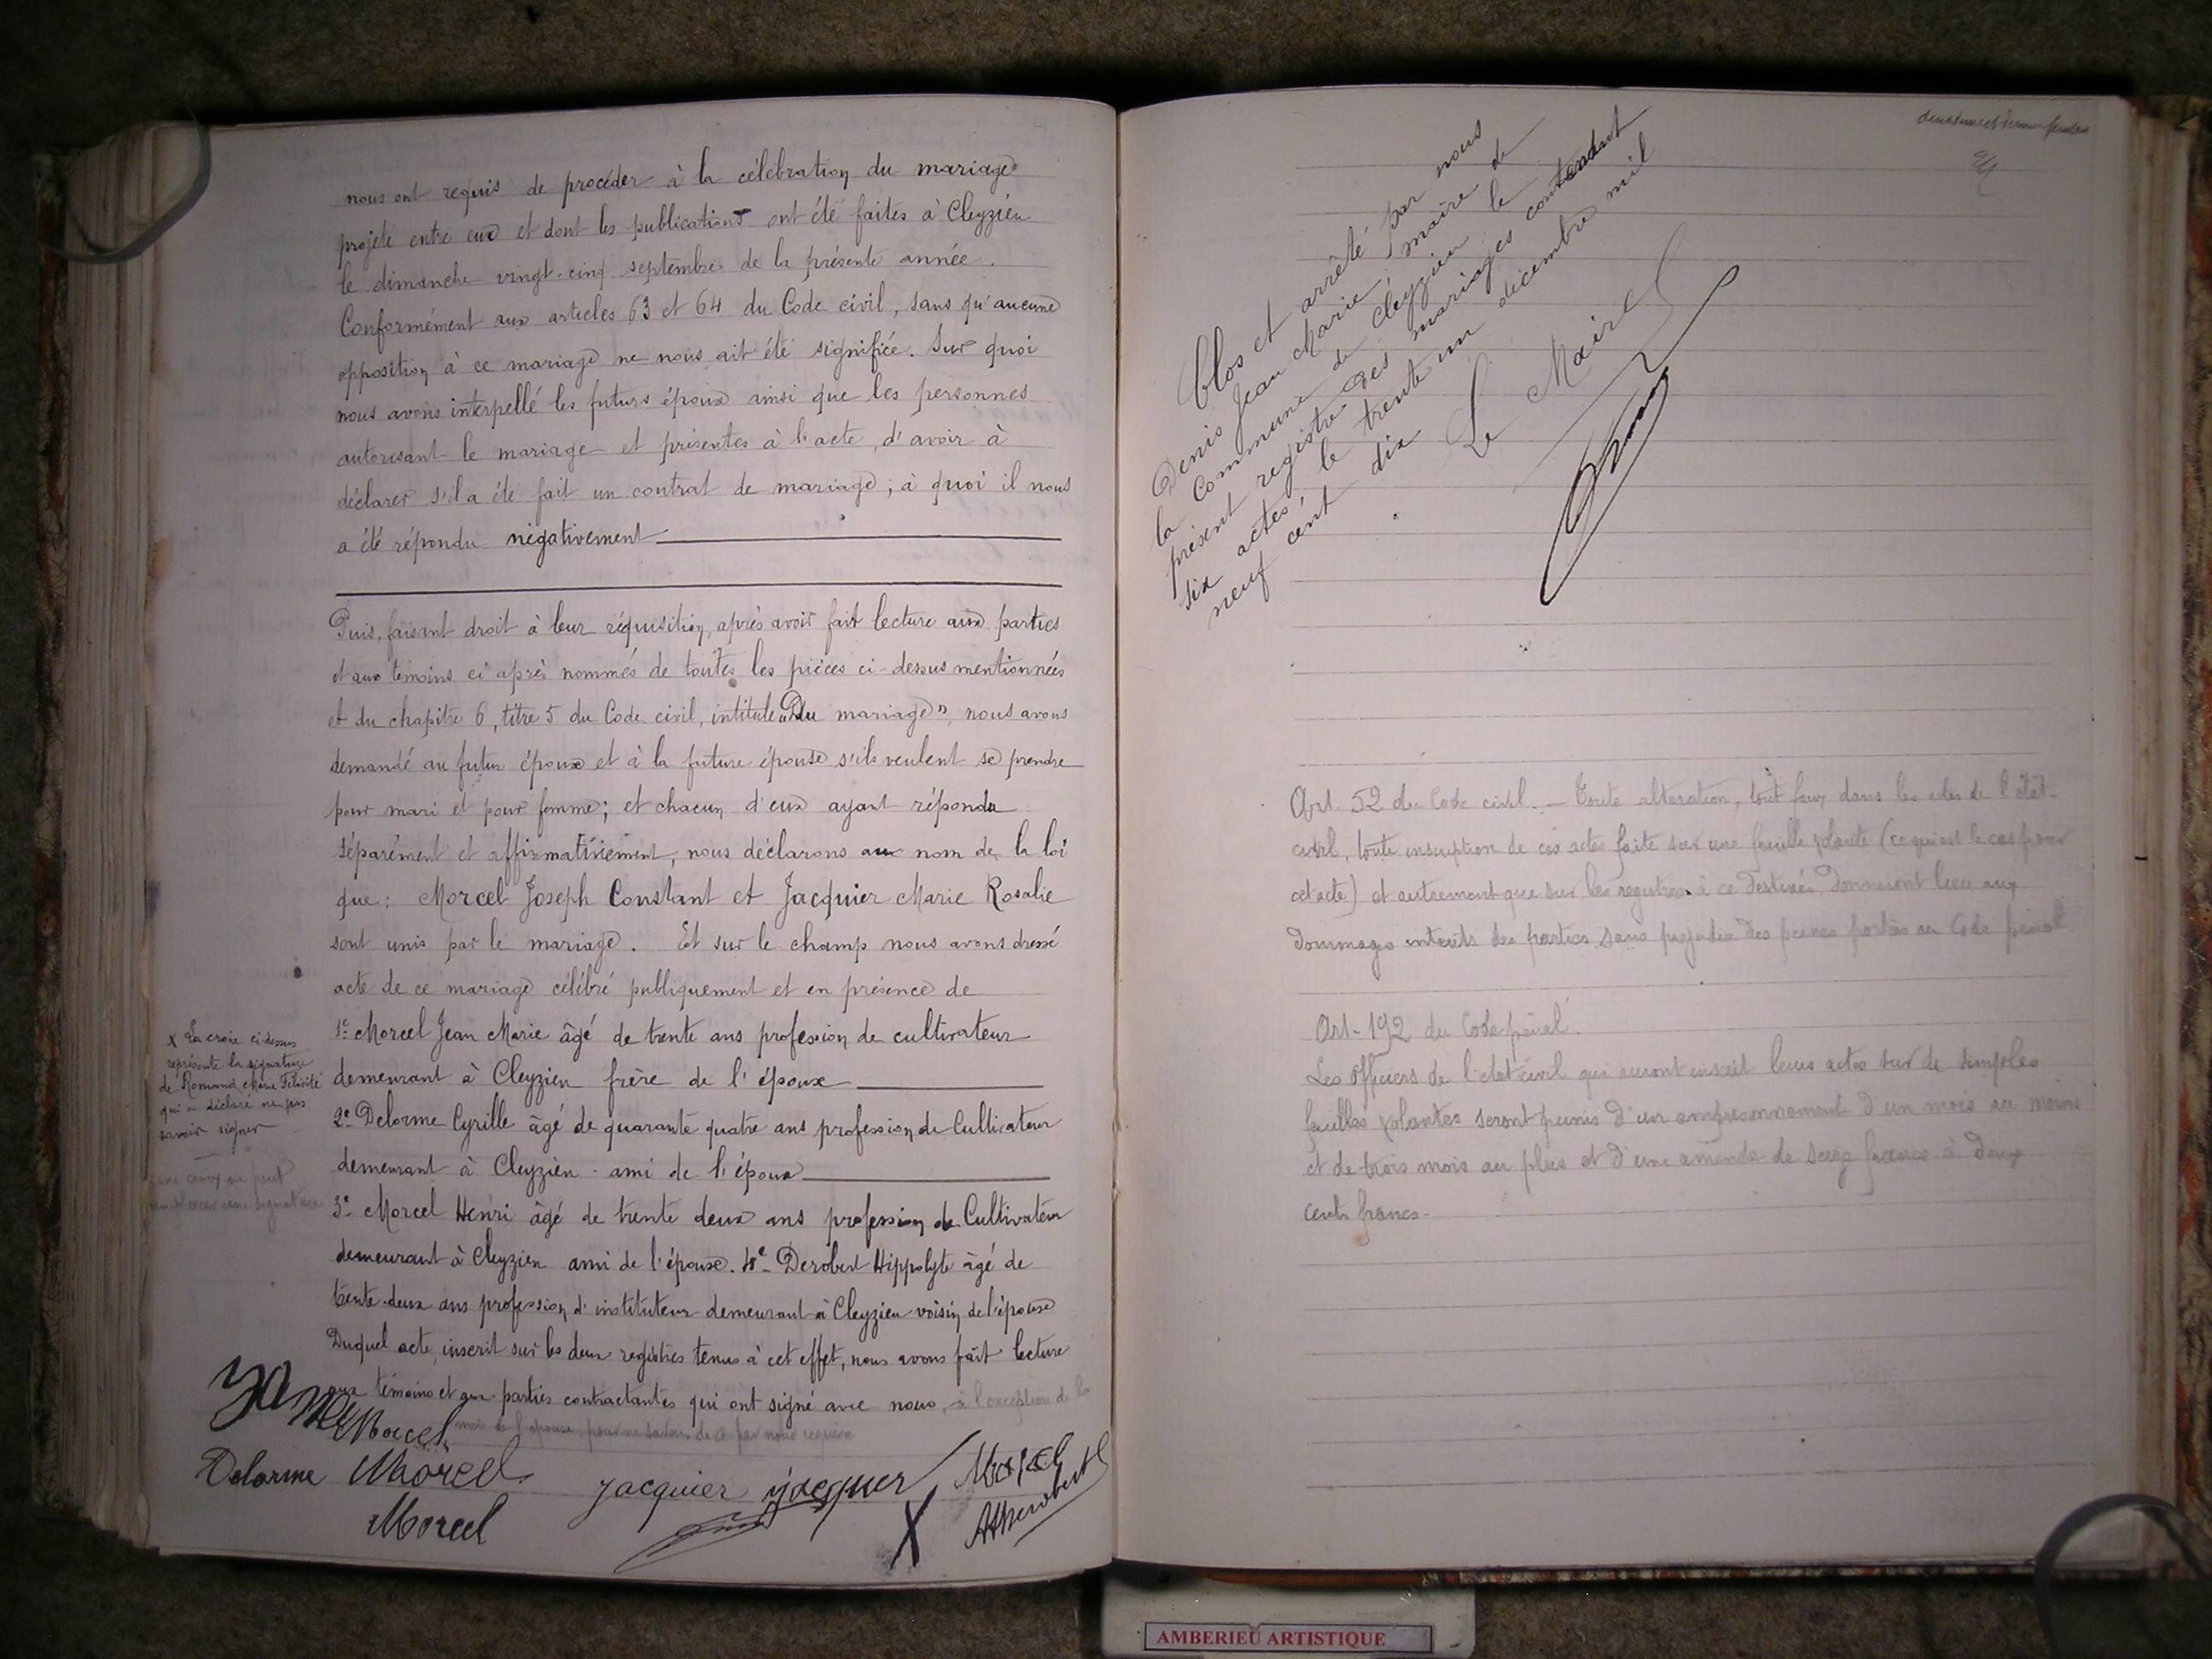 nous ont requis de procéder à la célébration du mariage
projeté entre eux et dont les publications ont été faites à Cleyzieu
le dimanche vingt-cinq septembre de la présente année.
Conformément aux articles 63 et 64 du Code civil, sans qu'aucune
opposition à ce mariage ne nous ait été signifiée. Sur quoi
nous avons interpellé les futurs époux ainsi que les personnes
autorisant le mariage et présentes à l'acte, d'avoir à
déclarer s'il a été fait un contrat de mariage ; à quoi il nous
a été répondu négativement
Puis, faisant droit à leur réquisition, après avoir fait lecture aux parties
et aux témoins ci après nommés de toutes les pièces ci-dessus mentionnées
et du chapitre 6, titre 5 du Code civil, intitulé "Du mariage", nous avons
demandé au futur époux et à la future épouse s'ils veulent se prendre
pour mari et pour femme ; et chacun d'eux ayant répondu
séparément et affirmativement, nous déclarons au nom de la loi
que : Morcel Joseph Constant et Jacquier Marie Rosalie
sont unis par le mariage. Et sur le champ nous avons dressé
acte de ce mariage célébré publiquement et en présence de
1e- Morcel Jean Marie âgé de trente ans profession de cultivateur
demeurant à Cleyzieu frère de l'époux
2e- Delorme Cyrille âgé de quarante quatre ans profession de Cultivateur
demeurant à Cleyzieu ami de l'époux
3e- Morcel Henri âgé de trente deux ans profession de Cultivateur
demeurant à Cleyzieu ami de l'épouse. 4e- Derobert Hippolyte âgé de
trente-deux ans profession d'instituteur demeurant à Cleyzieu voisin de l'épouse
Duquel acte, inscrit sur les deux registres tenus à cet effet, nous avons fait lecture
aux témoins et aux parties contractantes qui ont signé avec nous, à l'exception de la
mère de l'épouse, pour ne savoir de ce par nous requise
X La croix ci-dessus
représente la signature
de Romand Marie Félicité
qui a déclaré ne pas
savoir signer
une croix ne peut
remplacer une signature
Morcel
Delorme Morcel Jacquier Jacquier Morcel
Morcel X HDerobert
Clos et arrêté par nous
Denis Jean Marie, maire de
la Commune de Cleyzieu le
présent registre des mariages contenant
six actes le trente un décembre mil
neuf cent dix
Le Maire
Art. 52 du Code civil. — Toute altération, tout faux dans les actes de l'état-
civil, toute inscription de ces actes faite sur une feuille volante (ce qui est le cas pour
cet acte) et autrement que sur les registres à ce destinés donneront lieu aux
dommages intérêts des parties, sans préjudice des peines portées au Code pénal
Art. 192 du Code pénal.
Les officiers de l'état civil qui auront inscrit leurs actes sur de simples
feuilles volantes seront punis d'un emprisonnement d'un mois au moins
et de trois mois au plus et d'une amende de seize francs à deux
cents francs.
AMBERIEU ARTISTIQUE